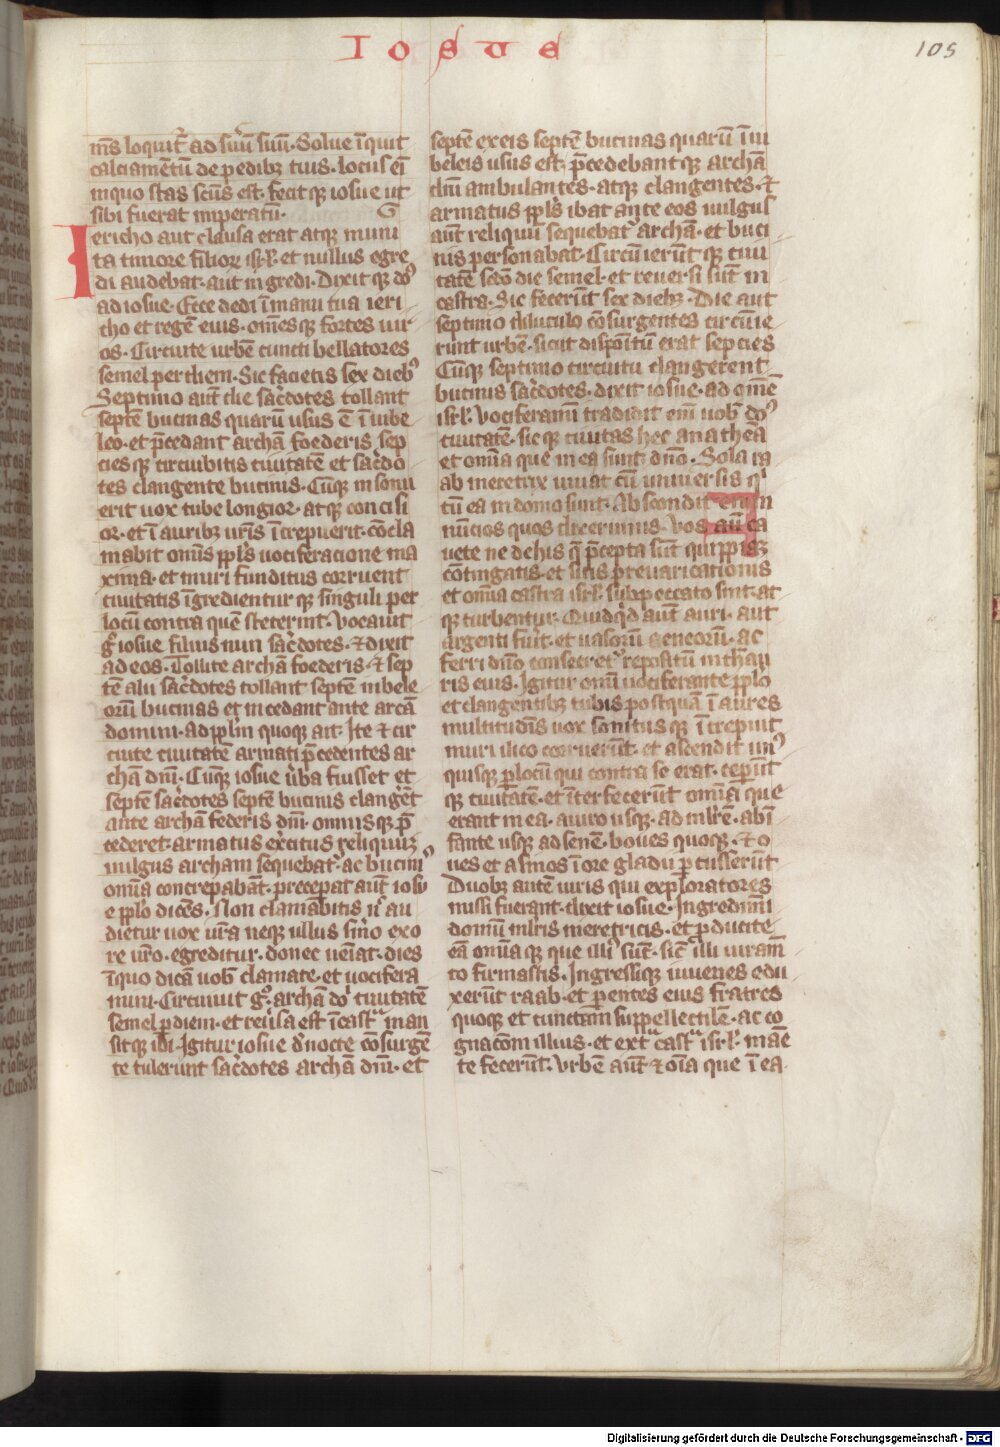 Iosue
105
m̄s loquit̄ ad s̄uū suū. Solue īquit
calciamētū de pedibꝫ tuis. locus ei
inquo stas sc̄us est. fecit qꝫ iosue ut
sibi fuerat imperatū.
Iericho aut clausa erat atqꝫ muni
ta timore filioꝝ isrl̄. et nullus egre
di audebat. aut in gredi. Dixit qꝫ dn̄s
ad iosue. Ecce dedi ī manu tua ieri
cho et regē eius. om̄es qꝫ fortes uir
os. Circuite urbē cuncti bellatores
semel per diem. Sic facietis sex dieb9
Septimo aut̄ die sac̄dotes tollant
septē bucinas quarū usus ē ī iube
leo. et p̄cedant archā foederis sep
cies qꝫ circuibitis ciuitatē et sac̄do
tes clangente bucinis. Cūqꝫ insonu
erit uox tube longior. atqꝫ concisi
or. et ī auribꝫ ur̄is īcrepuerit. cōcla
mabit om̄is ppl̄s uociferacione ma
xima. et muri funditus corruent
ciuitatis īgredientur qꝫ singuli per
locū contra quē steterint. Vocauit
g̊ iosue filius nun sac̄dotes. ⁊ dixit
ad eos. Tollite archā foederis. ⁊ sep
tē alii sac̄dotes tollant septē iubele
orū bucinas et incedant ante arcā
domini. ad ppl̄m quoqꝫ ait. Ite ⁊ cir
cuite ciuitatē armati p̄cedentes ar
chā dn̄i. Cūqꝫ iosue ūba finisset et
septē sac̄dotes septē bucinis clangēt
ante archā federis dn̄i. omnis qꝫ p̄
cederet. armatus ex̄citus reliquuꝫ
uulgus archam sequebat̄. ac bucinis
omīa concrepabāt. preceperat aut̄ iosu
e ppl̄o dicēs. Non clamabitis n̄ au
dietur uox ur̄a neqꝫ ullus s̄mo exo
re ur̄o. egreditur. donec ueīat. dies
īquo dicā uob̄ clamate. et uocifera
mini. Circuiuit g̊. archā dn̄i ciuitatē
semel ꝑ diem. et reūsa est ī casta man
sit qꝫ ibi. Igitur iosue d̄ nocte cōsurgē
te tulerunt sac̄dotes archā dn̄i. et
septē ex eis septē bucinas quarū ī iu
beleis usus est. p̄cedebant qꝫ archā
dn̄i ambulantes. atqꝫ clangentes. ⁊
armatus ppl̄s ibat ante eos uulgus
aut̄ reliquū sequebat̄ archā. et buci
nis personabat. Circūierūt qꝫ ciui
tatē sc̄do die semel. et reuersi sūt in
castra. Sic fecerūt sex diebꝫ. Die aut
septimo diluculo cōsurgentes circūie
runt urbē. sicut dispoītū erat sepcies
Cūqꝫ septimo circuitu clangerent
bucinis sac̄dotes. dixit iosue. ad om̄ē
isrl̄. Vociferamī tradidit eīm uob̄ dn̄s
ciuitatē. sic qꝫ ciuitas hec anatheā
et omīa que in ea sunt. dn̄o. Sola ra
ab meretrix uiuat cū uniuersis q
tū ea in domo sunt. Abscondit enim
nūcios quos direximus. Vos aut̄ ca
uete ne de his q̄ p̄cepta sūt quippiaꝫ
cōtingatis. et sitis preuaricationis
et omīa castra isrl̄. sub peccato sint. at
qꝫ turbentur. Quidq̄d aut̄ auri. aut
argenti fuīt. et uasorū aeneorū. ac
ferri dn̄o consecret̄ repositū in thau
ris eius. Igitur om̄i uociferante ppl̄o
et clangentibꝫ tubis postquā ī aures
multitudīs uox sonitus qꝫ īcrepuit
muri ilico corruerūt. et ascendit un9
quisqꝫ ꝑ locū qui contra se erat. ceperūt
qꝫ ciuitatē. et īterfecerūt omīa que
erant in ea. a uiro usqꝫ. ad mlr̄ē. ab ī
fante usqꝫ ad senē. boues quoqꝫ. ⁊ o
ues et asinos ī ore gladii ꝑcusserūt
Duobꝫ autē uiris qui exploratores
missi fuerant. dixit iosue. Ingredimī
domū mlr̄is meretricis. et ꝑducite
eā omīa qꝫ que illi9 sūt. sic̄ illi iuram̄
to firmastis. Ingressiqꝫ iuuenes edu
xerūt raab. et parentes eius fratres
quoqꝫ et cunctam suppellectilē. ac co
gnacōm illius. et ext̄ casta isrl̄. māē
te fecerūt. Vrbē aut̄ ⁊ oīa que ī ea
Digitalisierung gefördert durch die Deutsche Forschungsgemeinschaft - DFG